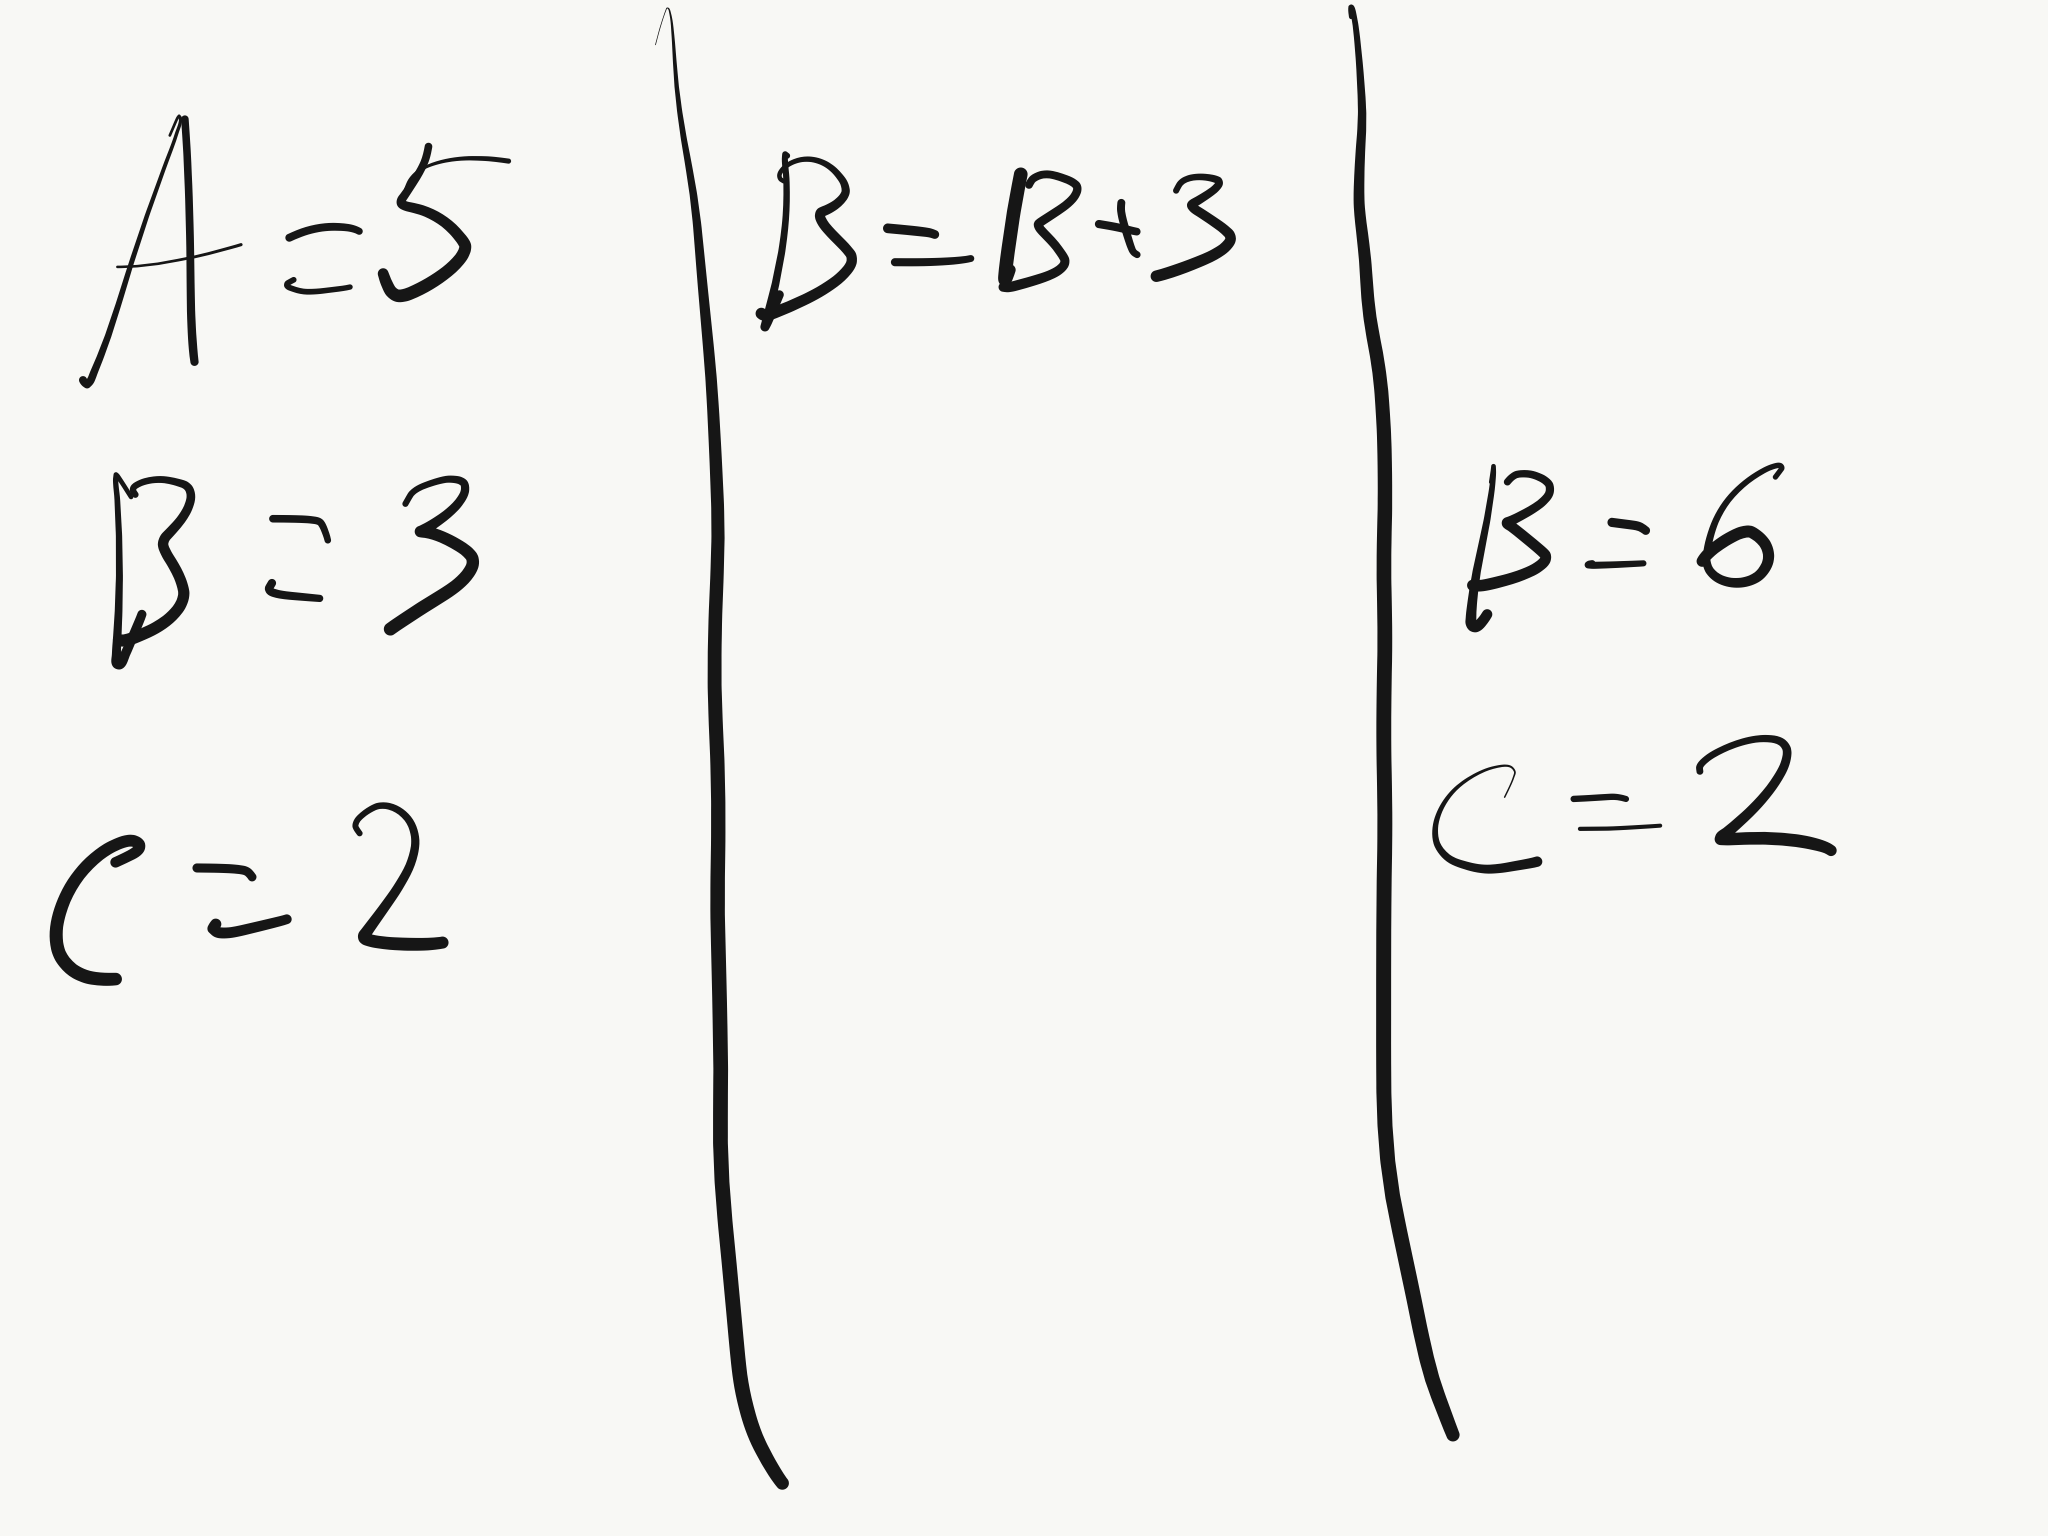 A = 5
B = 3
C = 2
B = B + 3
B = 6
C = 2